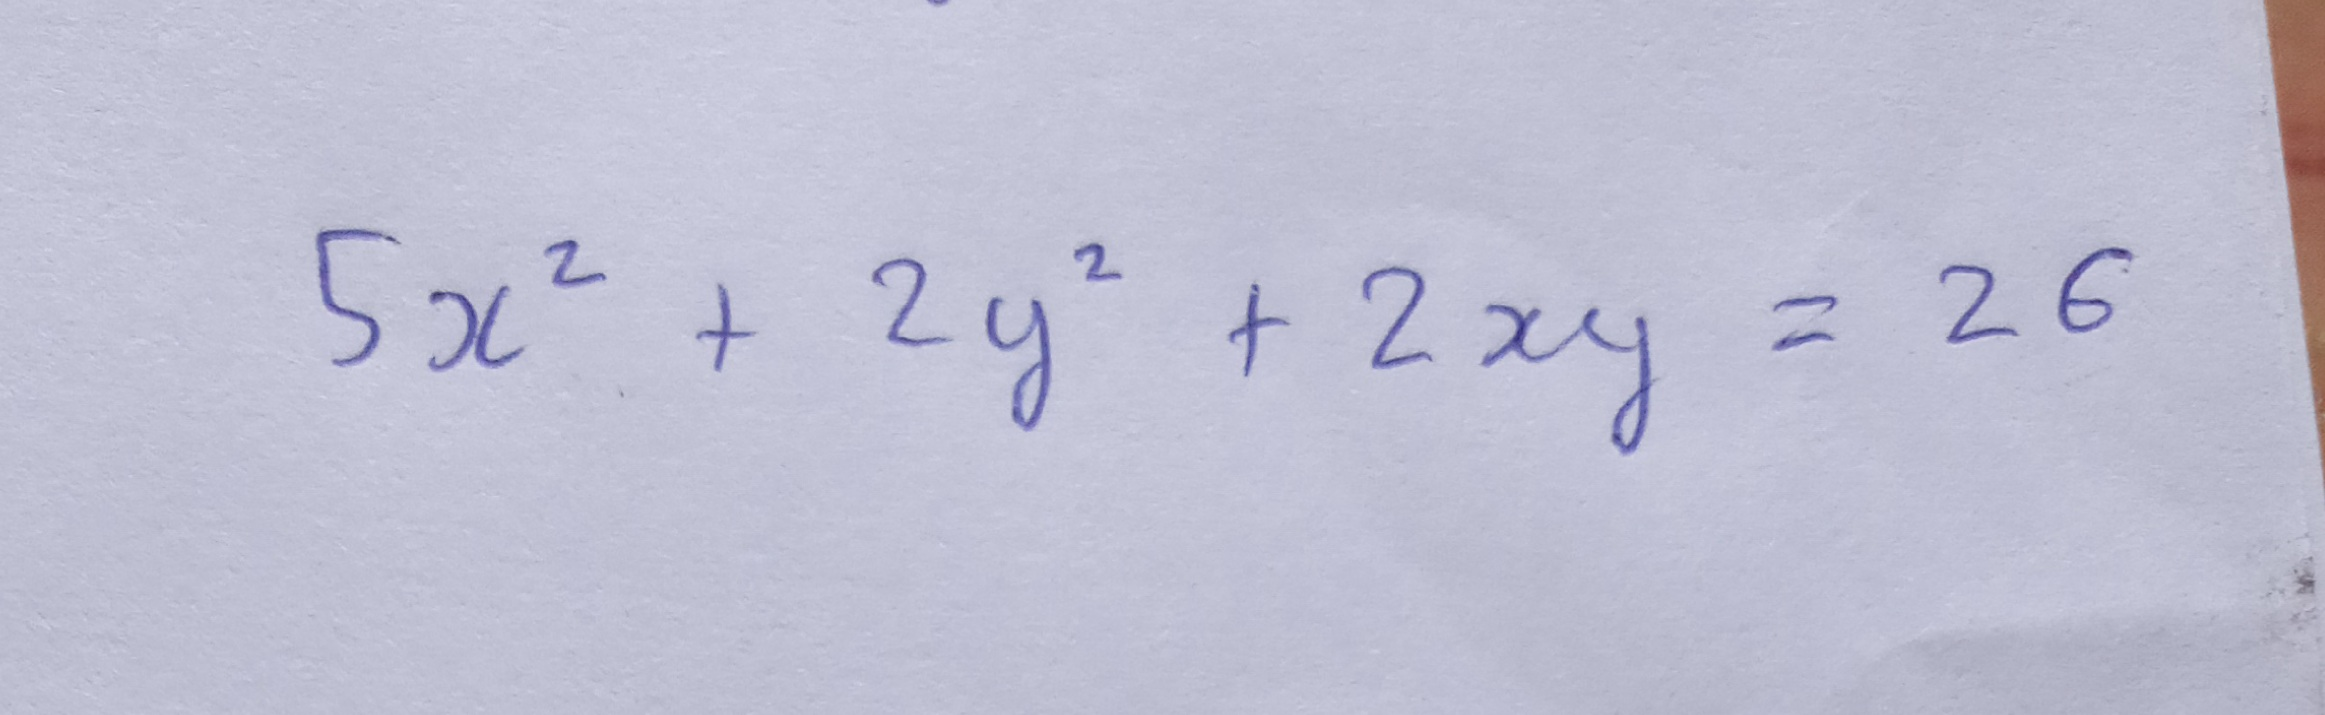 5x² + 2y² + 2xy = 26